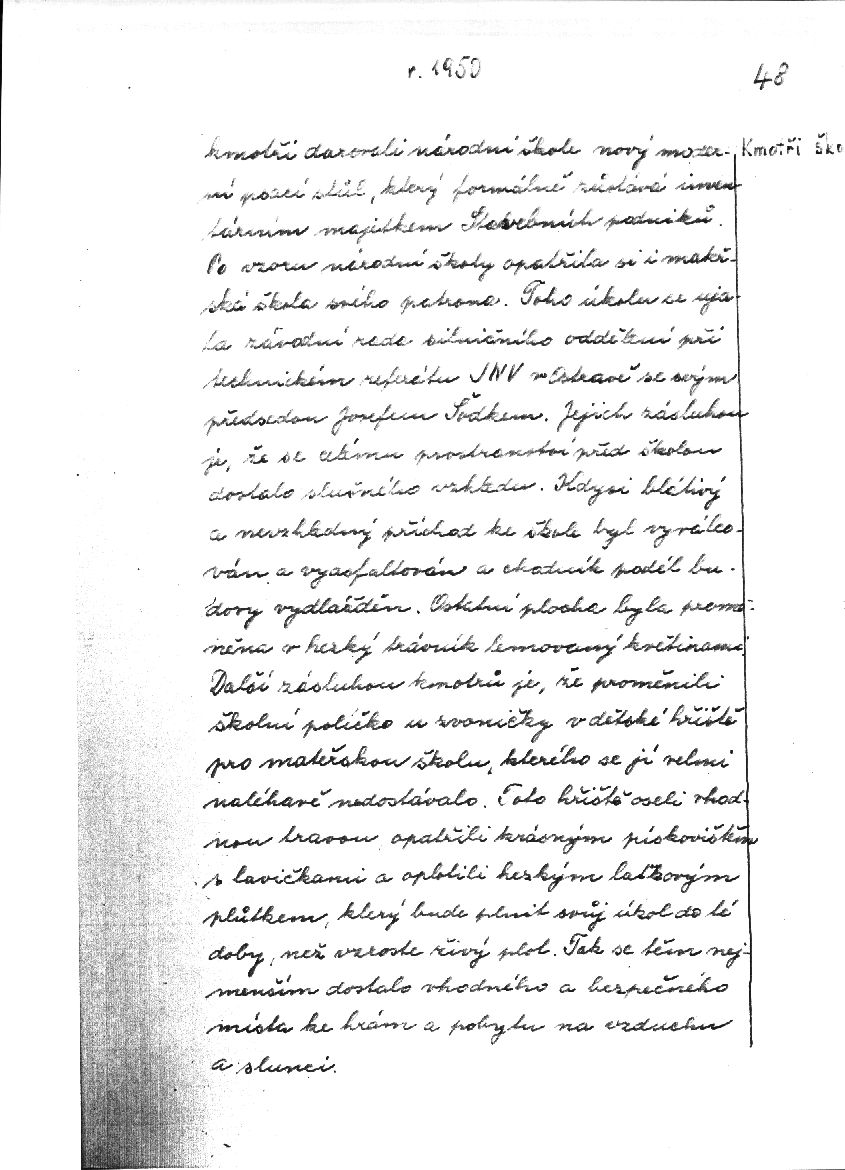 r. 1950
48
kmotři darovali národní škole nový moder-
Kmotři ško
ní psací stůl, který formálně zůstává inven
tárním majitkem Stavebních podniků.
Po vzoru národní školy opatřila si i mateř-
ská škola svého patrona. Toho úkolu se uja-
la závodní rada silničního oddělení při
technickém referátu JNV v Ostravě se svým
předsedou Josefem Sŏdkem. Jejich zásluhou
je, že se celému prostranství před školou
dostalo slušného vzhledu. Kdysi blátivý
a nevzhledný příchod ke škole byl vyválco-
ván a vyasfaltován a chodník podél bu-
dovy vydlážděn. Ostatní plocha byla promě-
něna v hezký trávník lemovaný květinami.
Další zásluhou kmotrů je, že proměnili
školní políčko u zvoničky v dětské hřiště
pro mateřskou školu, kterého se jí velmi
naléhavě nedostávalo. Toto hřiště oseli vhod-
nou travou opatřili krásným pískovištěm
s lavičkami a oplotili hezkým laťkovým
plůtkem, který bude plnit svůj úkol do té
doby, než vzroste živý plot. Tak se těm nej-
menším dostalo vhodného a bezpečného
místa ke hrám a pobytu na vzduchu
a slunci.